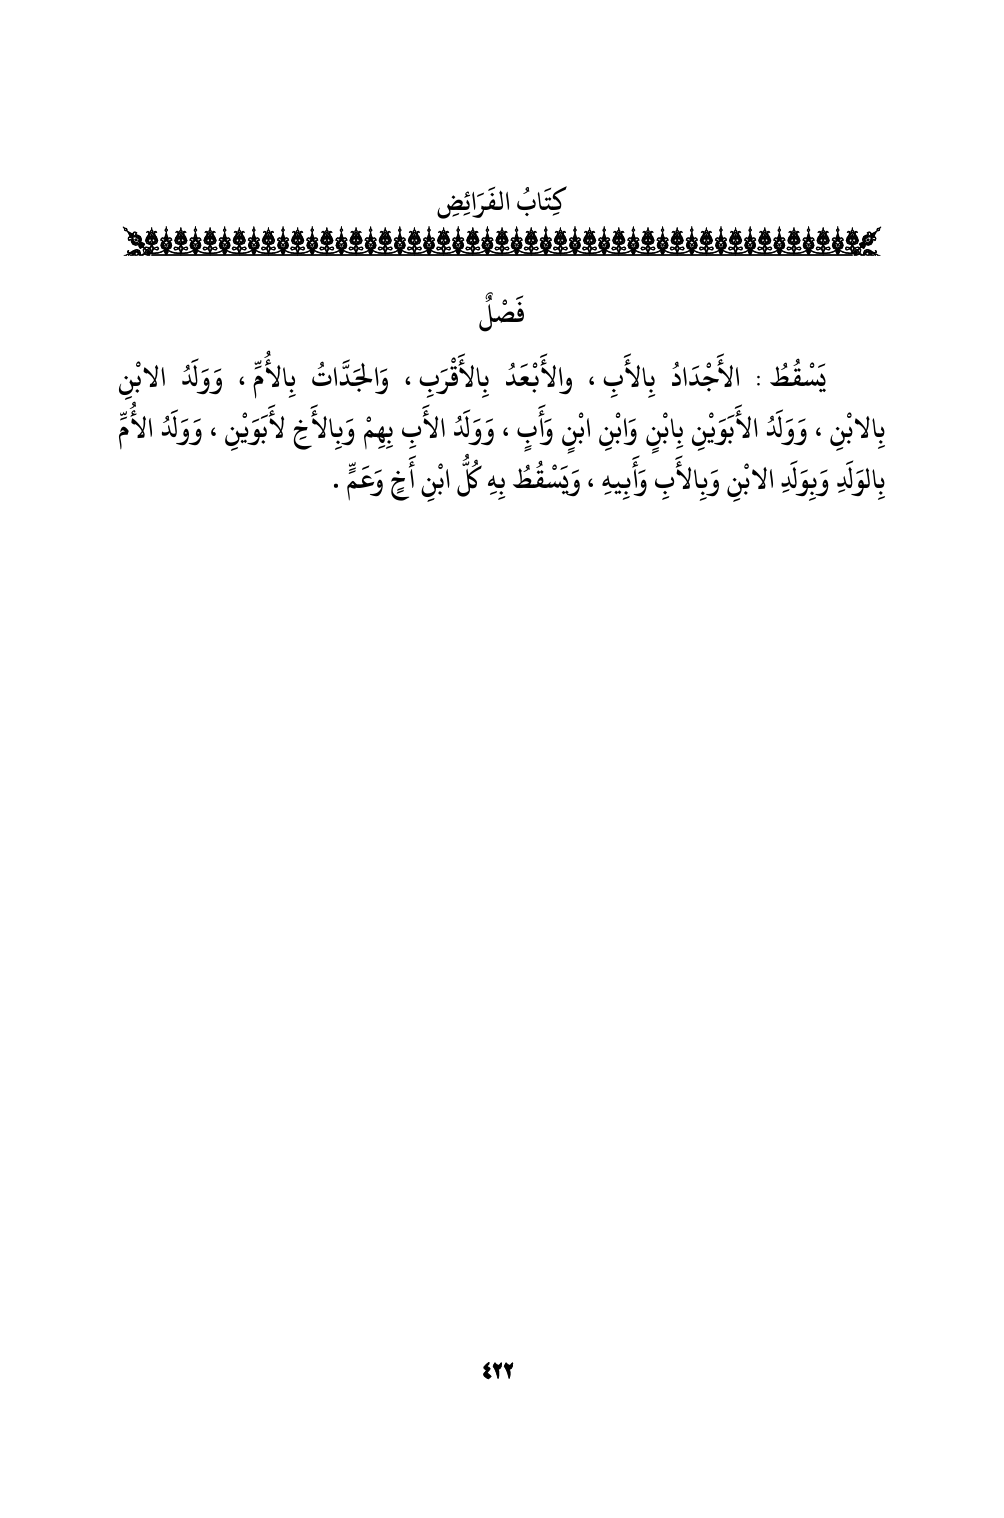 كِتَابُ الفَرَائِضِ
فَصْلٌ
يَسْقُطُ : الأَجْدَادُ بِالأَبِ ، والأَبْعَدُ بِالأَقْرَبِ ، وَالجَدَّاتُ بِالأُمِّ ، وَوَلَدُ الابْنِ
بِالابْنِ ، وَوَلَدُ الأَبَوَيْنِ بِابْنٍ وَابْنِ ابْنٍ وَأَبٍ ، وَوَلَدُ الأَبِ بِهِمْ وَبِالأَخِ لأَبَوَيْنِ ، وَوَلَدُ الأُمِّ
بِالوَلَدِ وَبِوَلَدِ الابْنِ وَبِالأَبِ وَأَبِيهِ ، وَيَسْقُطُ بِهِ كُلُّ ابْنِ أَخٍ وَعَمٍّ .
٤٢٢